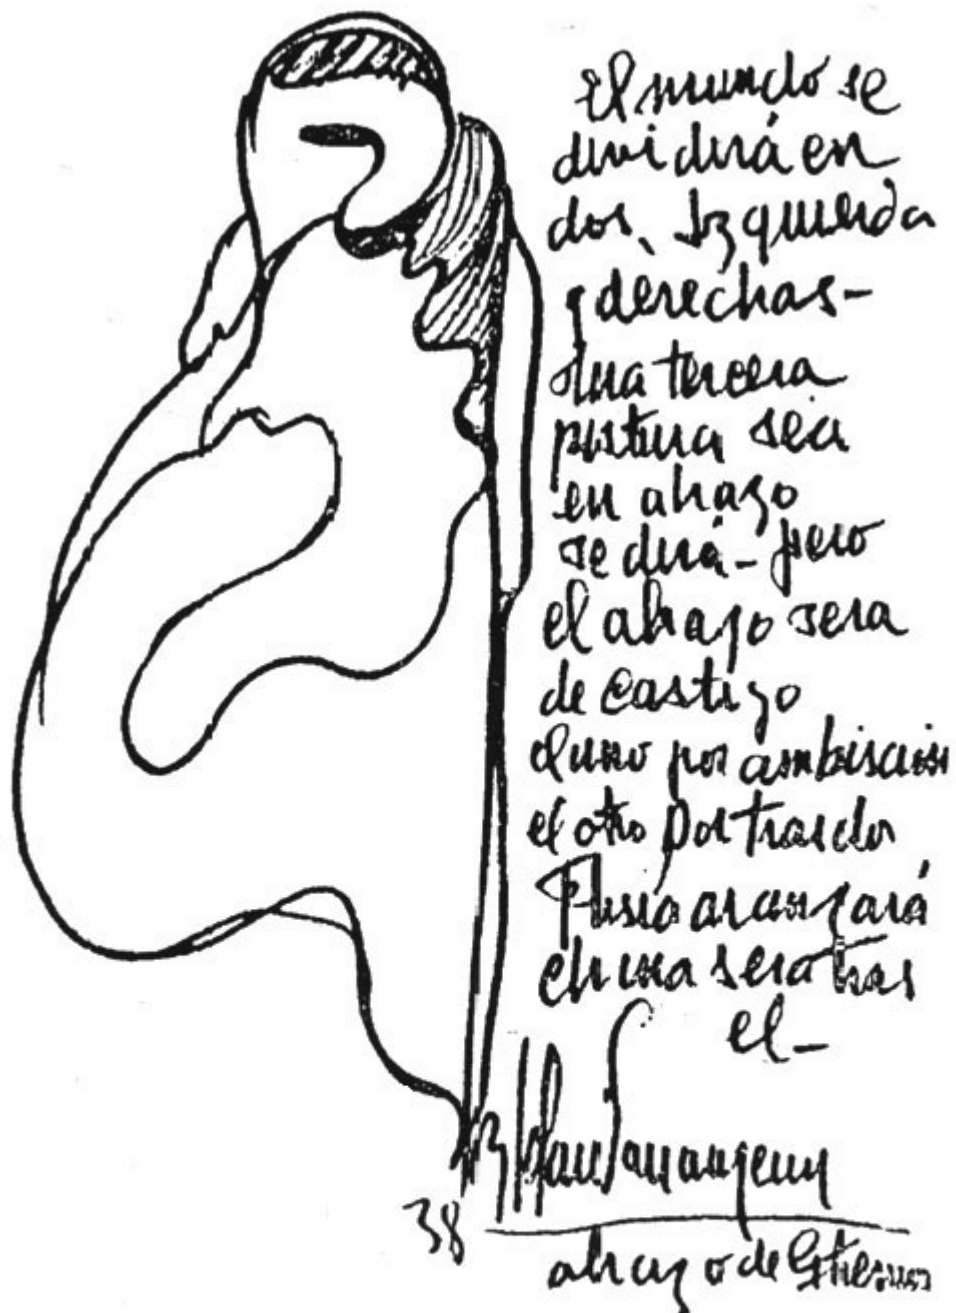 El mundo se
dividirá en
dos, Izquierda
y derechas-
una tercera
postura sera
en abrazo
se dirá- pero
el abrazo sera
de castigo
el uno por ambiscion
el otro por traidor
Rusia avanzará
china sera tras
el-
B Solari Parravicini
38
abrazo de